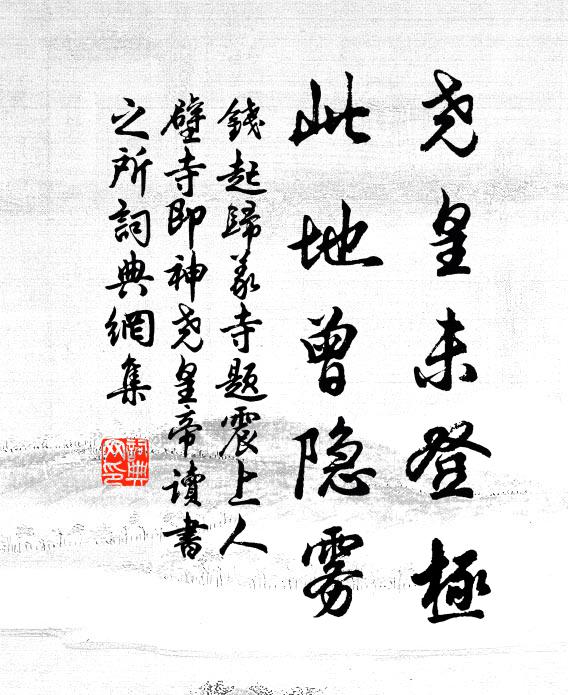 尧皇未登極
此地曾隐雾
錢起歸義寺題震上人
壁寺即神尧皇帝讀書
之所詞典網集
詞典
网印